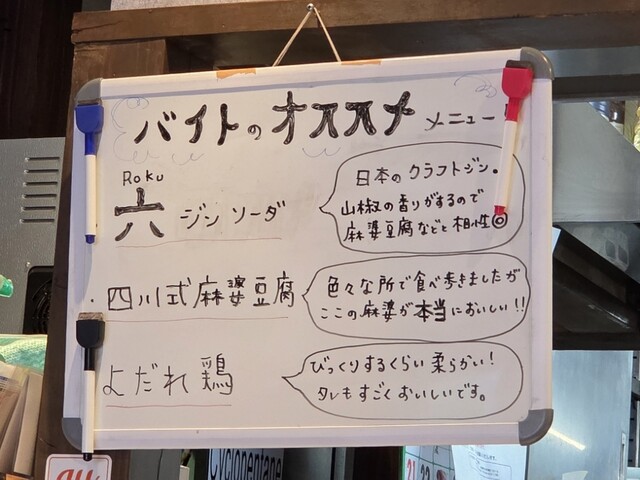 バイトのオススメ メニュー
Roku
六 ジン ソーダ
日本のクラフトジン。
山椒の香りがするので
麻婆豆腐などと相性◎
・四川式麻婆豆腐
色々な所で食べ歩きましたが
ここの麻婆が本当においしい!!
よだれ鶏
びっくりするくらい柔らかい!
タレもすごくおいしいです。
Cyclopentane
21 22